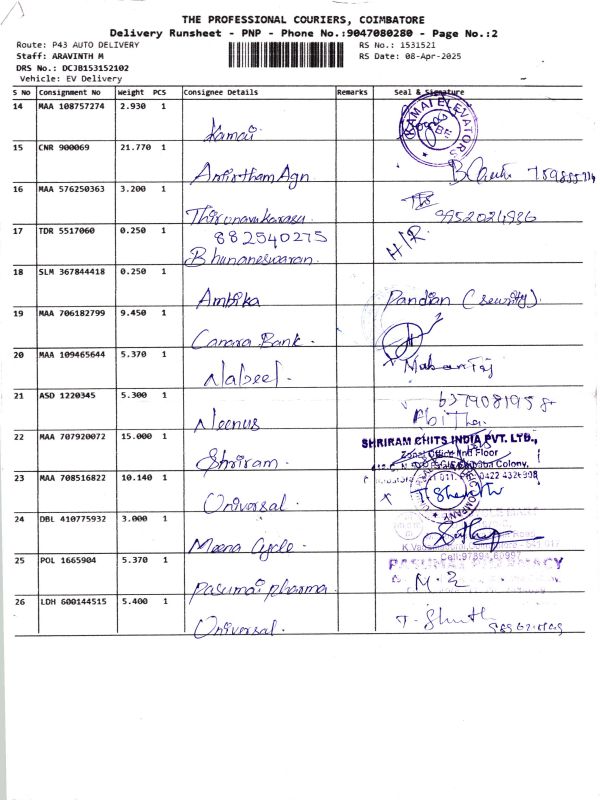 THE PROFESSIONAL COURIERS, COIMBATORE
Delivery Runsheet - PNP - Phone No.:9047080280 - Page No.:2
Route: P43 AUTO DELIVERY
RS No.: 1531521
Staff: ARAVINTH M
RS Date: 08-Apr-2025
DRS No.: DCJB153152102
Vehicle: EV Delivery
S No Consignment No Weight PCS Consignee Details Remarks Seal & Signature
14 MAA 108757274 2.930 1
Kamai
KAMAI ELEVATORS
15 CNR 900069 21.770 1
Amirtham Agn
16 MAA 576250363 3.200 1
Thirunavukarasu
9952024936
17 TDR 5517060 0.250 1
882540275
Bhuvaneswaran
H/R
18 SLM 367844418 0.250 1
Ambika
Pandian (security).
19 MAA 706182799 9.450 1
Canara Bank.
20 MAA 109465644 5.370 1
Nabeel.
21 ASD 1220345 5.300 1
Neenus
22 MAA 707920072 15.000 1
Shriram.
SHRIRAM CHITS INDIA PVT. LTD.,
Zonal Office IInd Floor
Colony,
0422 4326908
23 MAA 708516822 10.140 1
Universal.
COMPANY
24 DBL 410775932 3.000 1
Meena Cycle.
25 POL 1665904 5.370 1
Pasumai pharma.
PASUMAI PHARMACY
26 LDH 600144515 5.400 1
Universal.